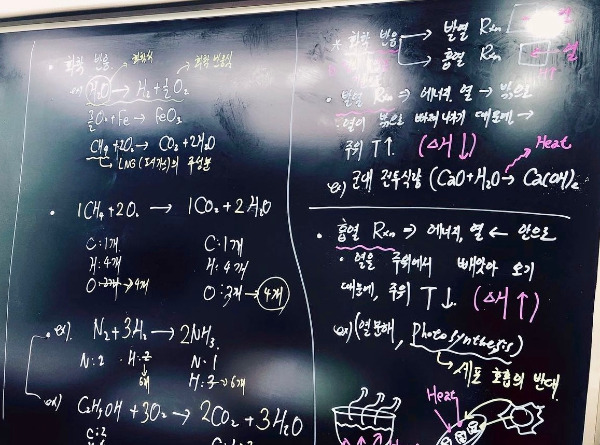 • 화학 반응 화학식 화학 반응식
ex) H₂O → H₂ + ½O₂
½O₂ + Fe → FeO₃
CH₄ + 2O₂ → CO₂ + 2H₂O
→ LNG (도시가스)의 주성분
• 1CH₄ + 2O₂ → 1CO₂ + 2H₂O
C : 1개 C : 1개
H : 4개 H : 4개
O : 2개 → 4개 O : 3개 → 4개
ex) N₂ + 3H₂ → 2NH₃
N : 2 • H : 2 N : 1
6개 H : 3 → 6개
ex) C₂H₅OH + 3O₂ → 2CO₂ + 3H₂O
C : 2
* 화학 반응 → 발열 Rxn
→ 흡열 Rxn
• 발열 Rxn ⇒ 에너지, 열 → 밖으로
• 열이 밖으로 빠져나가기 때문에 →
주위 T↑. (ΔH↓) Heat
ex) 군대 전투식량 (CaO + H₂O → Ca(OH)₂
• 흡열 Rxn ⇒ 에너지, 열 ← 안으로
• 열을 주위에서 빼앗아 오기
때문에, 주위 T↓. (ΔH↑)
ex) (열분해, Photosynthesis)
→ 세포 호흡의 반대
Heat